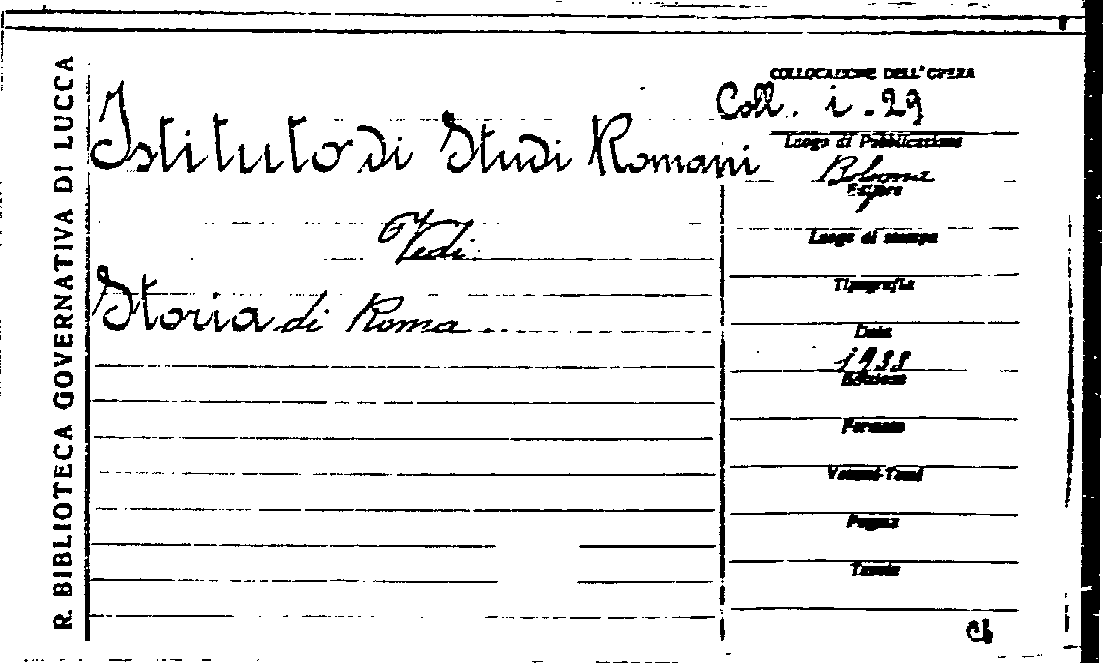 R. BIBLIOTECA GOVERNATIVA DI LUCCA
Istituto di Studi Romani
Vedi
Storia di Roma
COLLOCAZIONE DELL'OPERA
Coll. i. 29
Luogo di Pubblicazione
Bologna
Editore
Luogo di stampa
Tipografia
Data
1938
Edizione
Formato
Volumi-Tomi
Pagine
Tavole